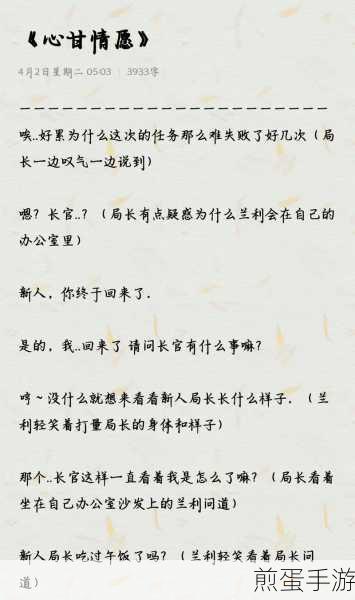 《心甘情愿》
4月2日星期二 05:03 | 3933字
－－－－－－－－－－－－－－－－－－－－－－
唉..好累为什么这次的任务那么难失败了好几次（局
长一边叹气一边说到）
嗯？长官..？（局长有点疑惑为什么兰利会在自己的
办公室里）
新人，你终于回来了.
是的，我..回来了 请问长官有什么事嘛?
哼~没什么就想来看看新人局长长什么样子.（兰
利轻笑着打量局长的身体和样子）
那个..长官这样一直看着我是怎么了嘛？（局长看着
坐在自己办公室沙发上的兰利问道）
新人局长吃过午饭了吗？（兰利轻笑看着局长问
道）
煎蛋手游